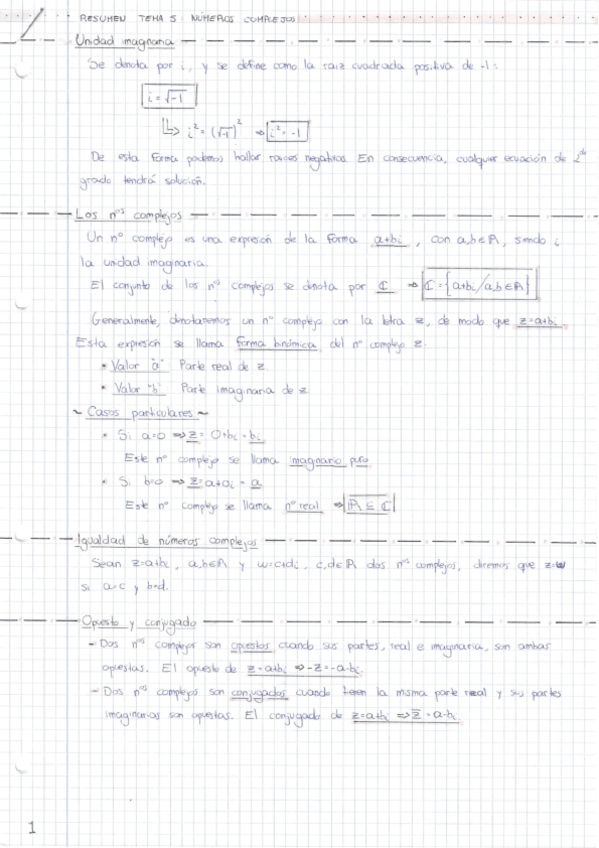 RESUMEN TEMA 5: NÚMEROS COMPLEJOS
Unidad imaginaria
Se denota por i, y se define como la raíz cuadrada positiva de -1:
i=√-1
i² = (√-1)² ⇒ i² = -1
De esta forma podemos hallar raíces negativas. En consecuencia, cualquier ecuación de 2do
grado tendrá solución.
Los nos complejos
Un nº complejo es una expresión de la forma a+bi, con a,b∈ℝ, siendo i
la unidad imaginaria.
El conjunto de los nos complejos se denota por ℂ ⇒ ℂ={a+bi/a,b∈ℝ}
Generalmente, denotaremos un nº complejo con la letra z, de modo que z=a+bi.
Esta expresión se llama forma binómica del nº complejo z.
* Valor "a" Parte real de z.
* Valor "b" Parte imaginaria de z
~ Casos particulares ~
* Si a=0 ⇒ z = 0+bi = bi
Este nº complejo se llama imaginario puro
* Si b=0 ⇒ z=a+0i = a
Este nº complejo se llama nº real ⇒ ℝ ⊆ ℂ
Igualdad de números complejos
Sean z=a+bi, a,b∈ℝ y w=c+di, c,d∈ℝ dos nos complejos, diremos que z=w
si a=c y b=d.
Opuesto y conjugado
- Dos nos complejos son opuestos cuando sus partes, real e imaginaria, son ambas
opuestas. El opuesto de z=a+bi ⇒ -z=-a-bi.
- Dos nos complejos son conjugados cuando tienen la misma parte real y sus partes
imaginarias son opuestas. El conjugado de z=a+bi ⇒ z̄ = a-bi.
1